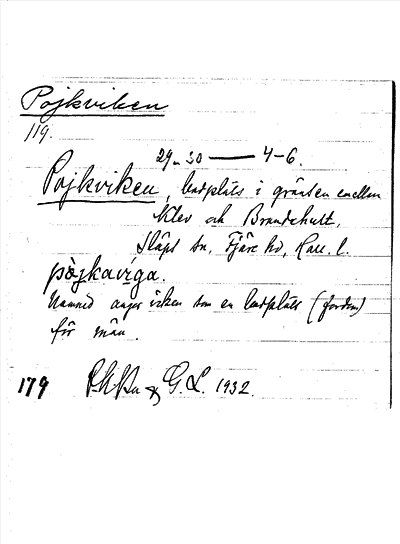 Pojkviken
119.
29-30 — 4-6.
Pojkviken, badplats i gränsen mellan
Klev och Brandshult,
Släps sn, Fjäre hd, Hall. l.
pòjkaviga.
Namnet anger viken som en badplats (fordom)
för män.
179 & G. L. 1932.